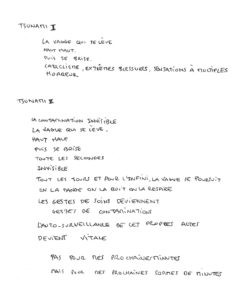 TSUNAMI I
LA VAGUE QUI SE LÈVE
HAUT HAUT.
PUIS SE BRISE.
CATACLISME, EXTRÊMES BLESSURES, SENSATIONS À MULTIPLES
HORREUR.
TSUNAMI II
LA CONTAMINATION INVISIBLE
LA VAGUE QUI SE LÈVE.
HAUT HAUT
PUIS SE BRISE
TOUTE LES SECONDES
INVISIBLE
TOUT LES JOURS ET POUR L'INFINI, LA VAGUE SE POURSUIT
ON LA MANGE ON LA BOIT ON LA RESPIRE
LES GESTES DE SOINS DEVIENNENT
GESTES DE CONTAMINATIONS
L'AUTO-SURVEILLANCE DE CET PROPRES ACTES
DEVIENT VITALE
PAS POUR MES PROCHAINES MINUTES
MAIS POUR MES PROCHAINES SOMMES DE MINUTES